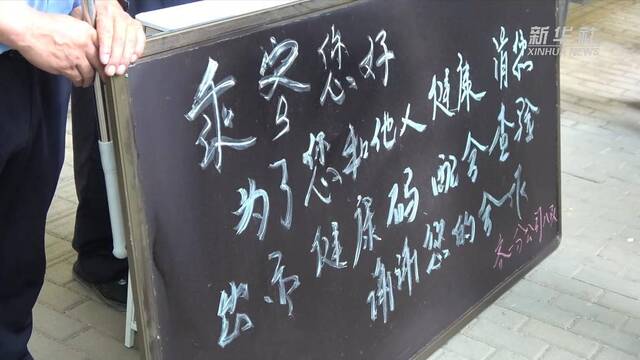 新华社
XINHUA NEWS
乘客您好
为了您和他人健康 请您
出示健康码 配合查验
谢谢您的合作
客分公司八队